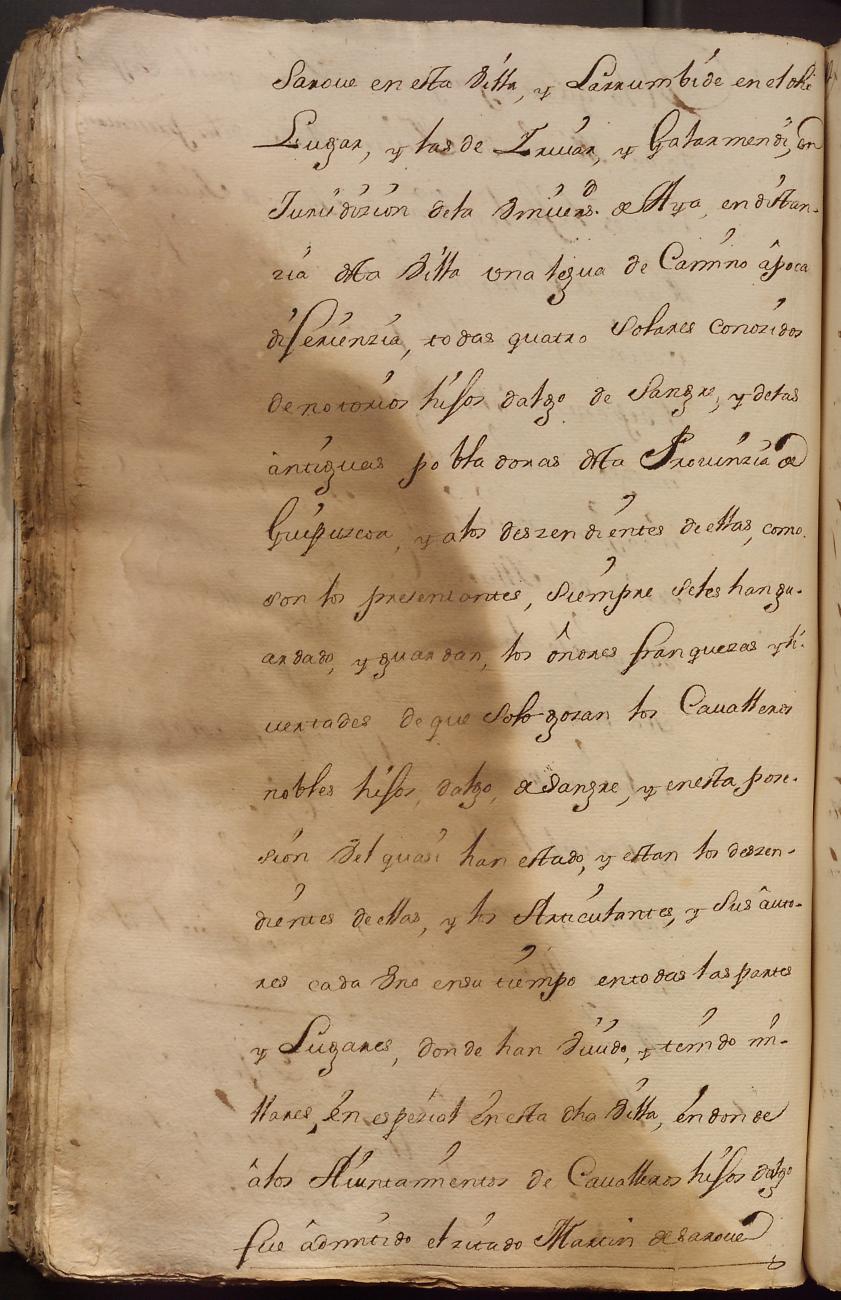 Saroue en esta Villa, y Larrumbide en el dho
Lugar, y las de Yruar, y Gatarmendi, en
Jurisdizion dela Vniuersd. de Aya, en distan-
zia desta Villa vna legua de Camino âpoca
diferienzia, todas quatro Solares conozidos
de notorios hijos dalgo de Sangre, y delas
antiguas pobladoras desta Prouinzia de
Guipuzcoa, y alos deszendientes de ellas, como
son los presentantes, siempre seles han gu-
ardado, y guardan, los ônores franquezas y li-
uertades de que solo gozan los Caualleros
nobles hijos, dalgo, de Sangre, y enesta pose-
sion Vel quasi han estado, y estan los deszen-
dientes de ellas, y los Articulantes, y sus âuto-
res cada Vno ensu tiempo entodas las partes
y Lugares, donde han Viuido, y tenido mi-
llares, en espezial enesta dha Villa, en donde
âlos Aiuntamientos de Caualleros hijos dalgo
fue âdmitido el zitado Martin de Saroue